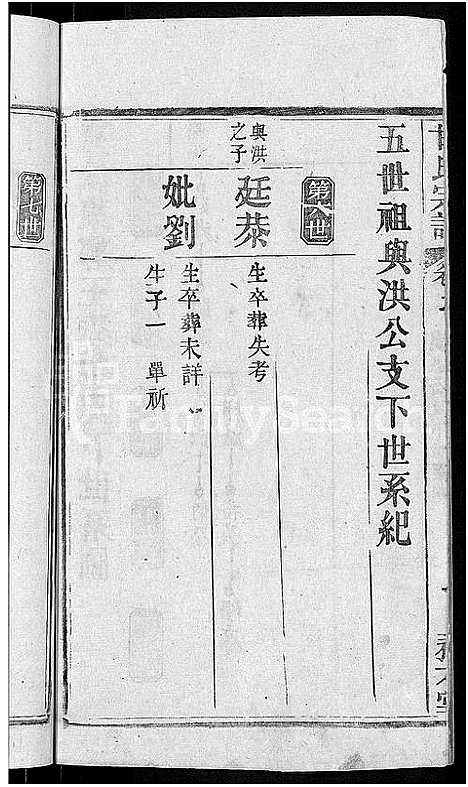 五世祖與洪公支下世系紀
第六世
與洪之子
廷恭
生卒葬失考
妣劉
生卒葬未詳
生子一 單祈
第七世
FamilySearch